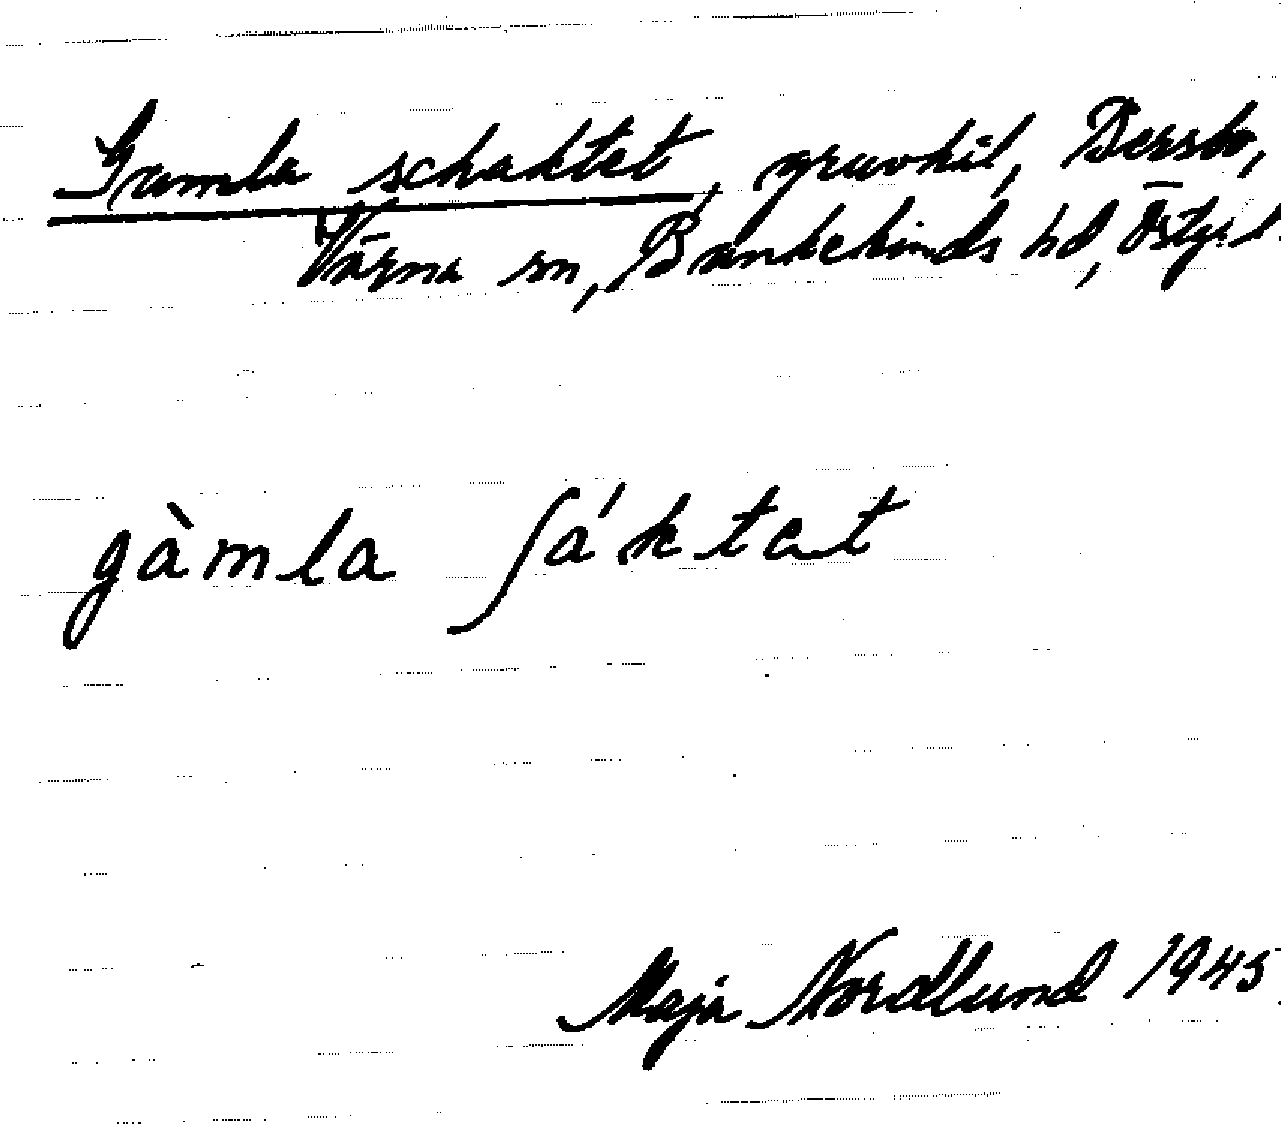 Gamla schaktet, gruvhål, Bersbo,
Värna sn, Bankekinds hd, Östgötl.
gàmla ʃáktet
Maja Nordlund 1945.